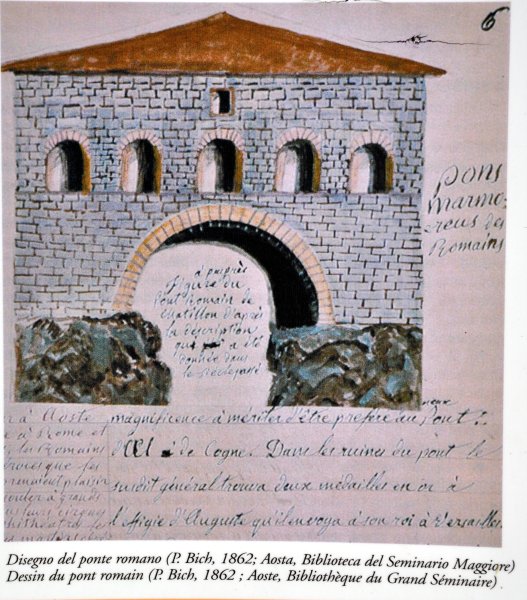 6
pons
marmo-
reus des
Romains
à peu près
figure du
Pont Romain de
chatillon d'après
la description
qui a été
donnée dans
le
r à Aoste
e à Rome et
les Romains
prennent plaisir
à grands
leurs cirques
neux
magnificence à mériter d'être préféré au Pont
d'Ael de Cogne. Dans les ruines du pont le
susdit général trouva deux médailles en or à
l'effigie d'Auguste qu'il envoya à son roi à Versailles.
Disegno del ponte romano (P. Bich, 1862; Aosta, Biblioteca del Seminario Maggiore)
Dessin du pont romain (P. Bich, 1862 ; Aoste, Bibliothèque du Grand Séminaire)